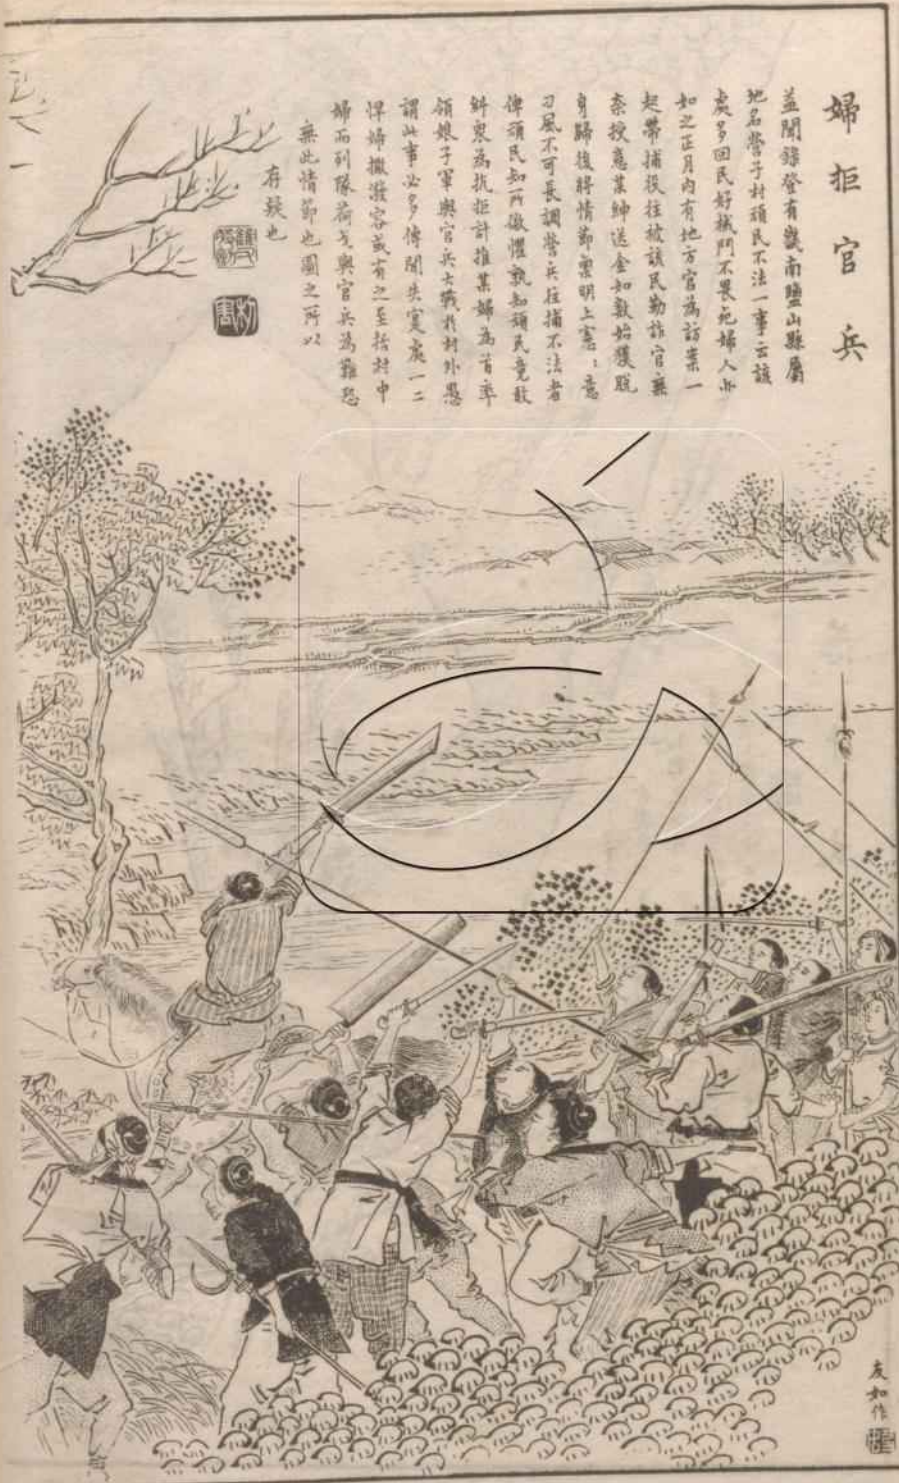 婦拒官兵
益聞錄登有畿南鹽山縣屬
地名營子村頑民不法一事云該
處多回民好械鬥不畏死婦人亦
如之正月內有地方官為訪案一
起帶捕役往被該民勒詐官無
奈授意某紳送金如數始獲脫
身歸後將情節稟明上憲〻意
刁風不可長調營兵往捕不法者
俾頑民知所儆懼孰知頑民竟敢
糾衆為抗拒計推某婦為首率
領娘子軍與官兵大戰於村外愚
謂此事必多傳聞失實處一二
悍婦撒潑容或有之至括村中
婦而列隊荷戈與官兵為難恐
無此情節也圖之所以
存疑也
友如作